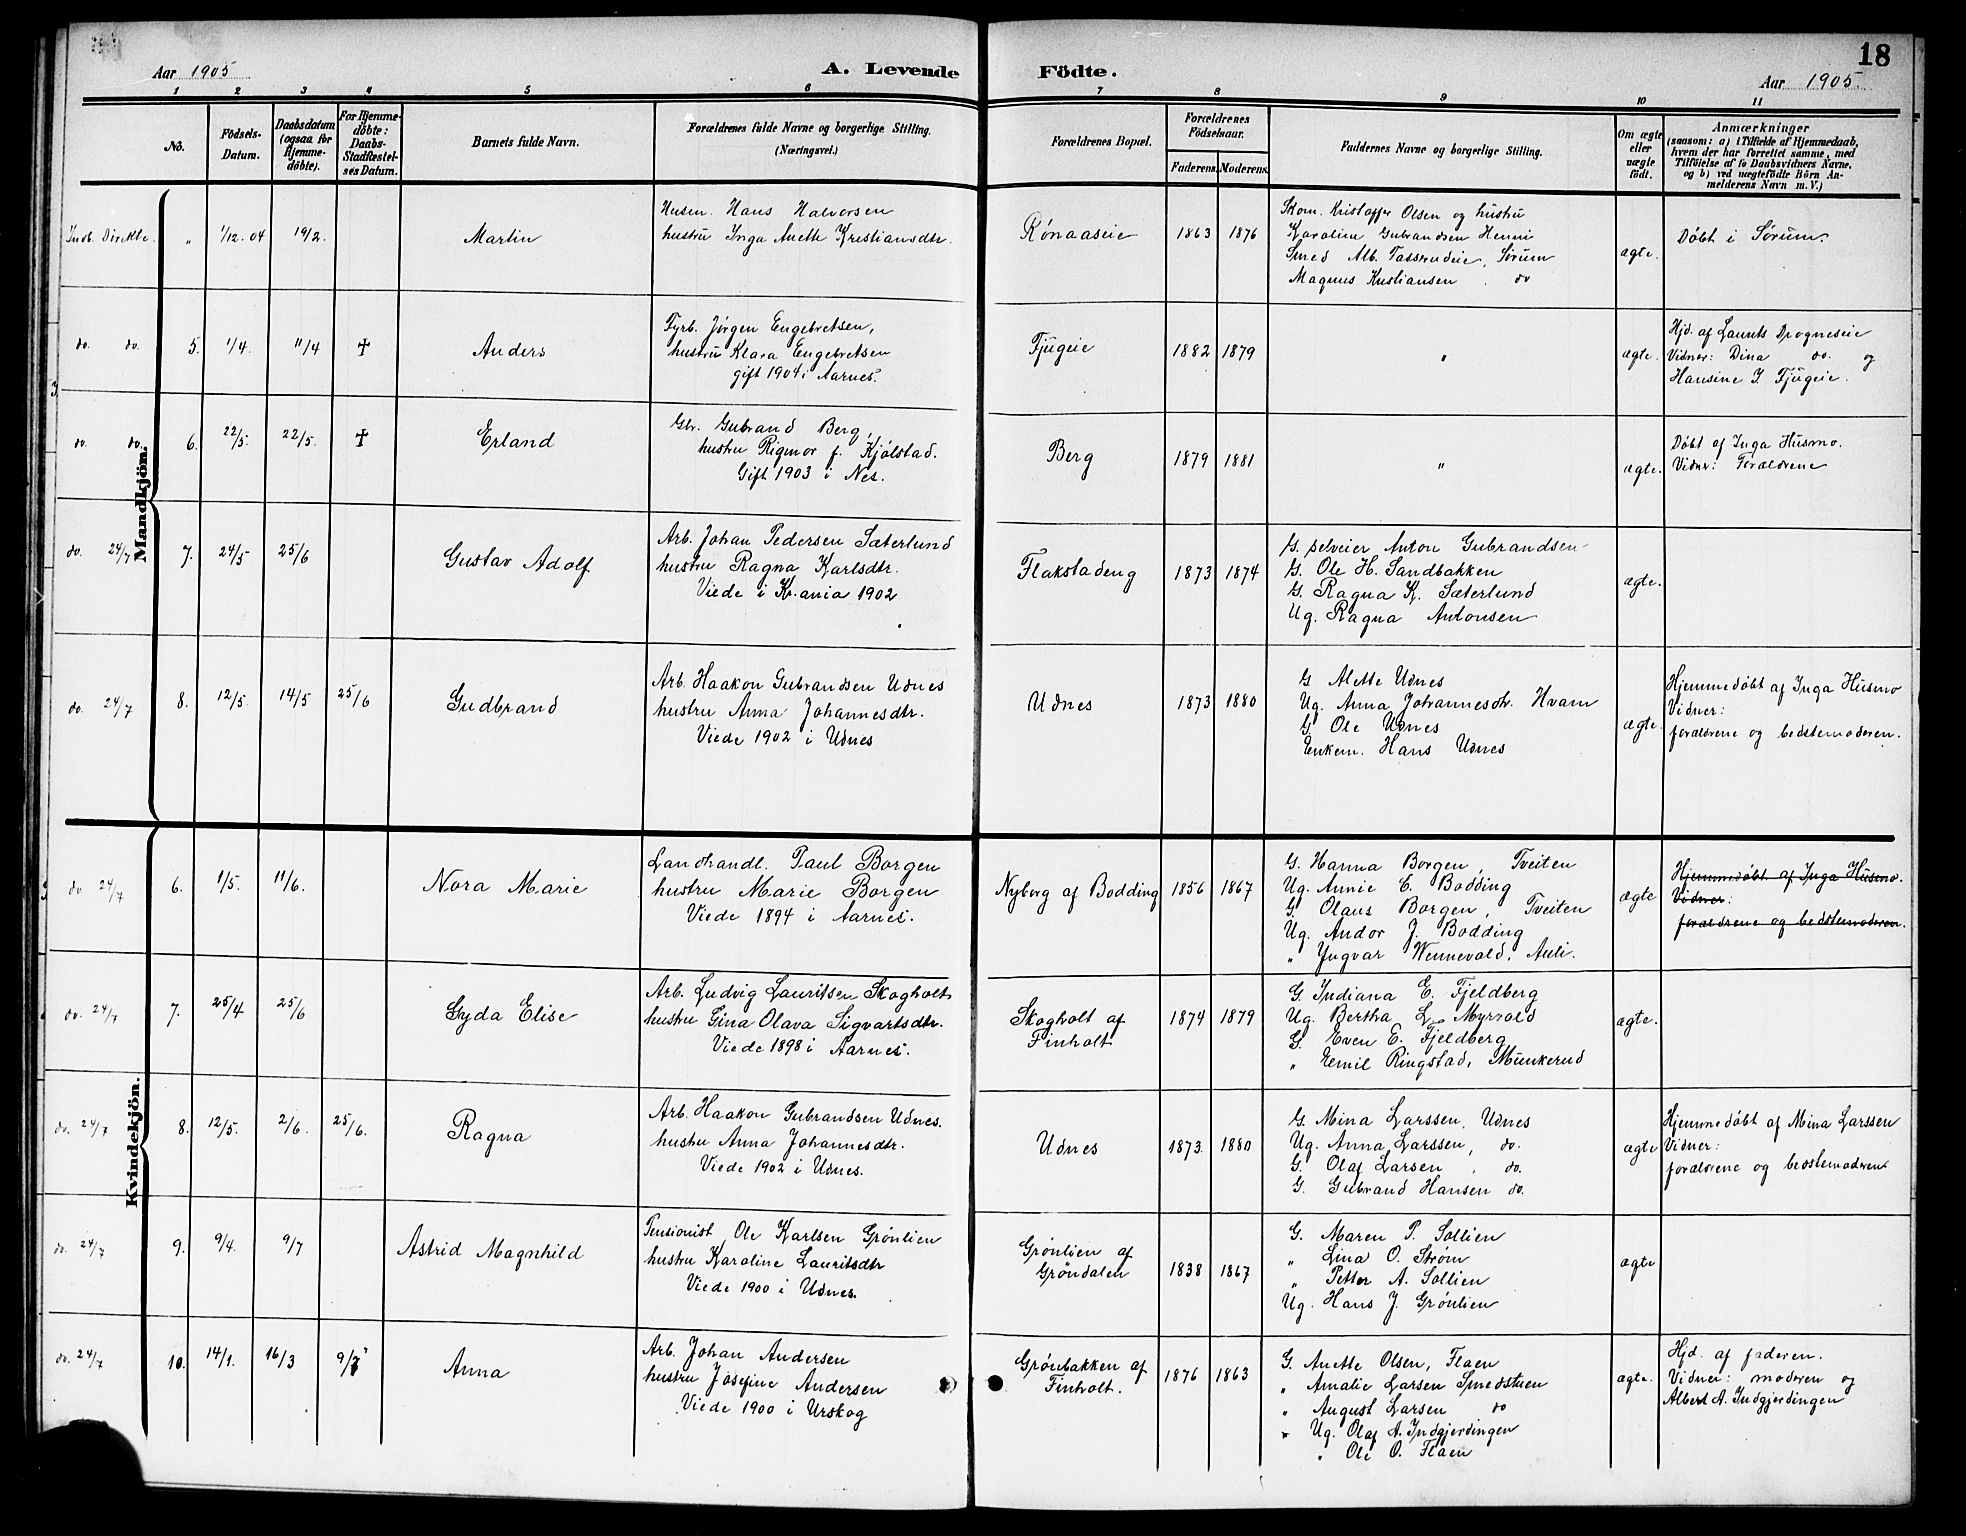 18
Aar 1905
A. Levende Födte.
Aar 1905.
1 2 3 4 5 6 7 8 9 10 11
No.
Födsels-Datum.
Daabsdatum (ogsaa for Hjemme-döbte).
For Hjemme-döbte: Daabs-Stadfæstel-ses Datum.
Barnets fulde Navn.
Forældrenes fulde Navne og borgerlige Stilling.
(Næringsvei.)
Forældrenes Bopæl.
Forældrenes Födselsaar.
Faderens. Moderens.
Faddernes Navne og borgerlige Stilling.
Om ægte eller uægte födt.
Anmærkninger
(saasom: a) i Tilfælde af Hjemmedaab,
hvem der har forrettet samme, med
Tilföielse af to Daabsvidners Navne,
og b) ved uægtefödte Börn An-
melderens Navn m. V.)
Mandkjön.
Indb. Direkte. " 1/12.04 19/2. Martin
Husm. Hans Halvorsen
hustru Inga Anette Kristiansdtr.
Rønaaseie 1863 1876
Skom. Kristoffer Olsen og hustru
Karoline Gubrandsen Henni
Smed Alb. Tasserudeie, Sørum
Magnus Kristiansen do
ægte.
Døbt i Sørum.
do. do. 5. 1/4. 11/4 ✝ Anders
Fyrb. Jørgen Engebretsen,
hustru Klara Engebretsen
gift 1904 i Aarnes.
Fjugeie 1882 1879 "
ægte.
Hjd. af Laurits Drogneseie
Vidner: Dina do. og
Hansine J. Fjugeie.
do. do. 6. 22/5. 22/5. ✝ Erland
Gbr. Gubrand Berg,
hustru Rigmor f. Kjølstad.
Gift 1903 i Nes.
Berg 1879 1881 "
ægte.
Døbt af Inga Husmo.
Vidner: Forældrene
do. 24/7 7. 24/5 25/6 Gustav Adolf
Arb. Johan Pedersen Sæterlund
hustru Ragna Karlsdtr.
Viede i Kr.ania 1902
Flakstadeng 1873 1874
G. selveier Anton Gubrandsen
G. Ole H. Sandbakken
G. Ragna K. Sæterlund
Ug. Ragna Antonsen
ægte.
do. 24/7 8. 12/5. 14/5 25/6 Gudbrand
Arb. Haakon Gubrandsen Udnes
hustru Anna Johannesdtr.
Viede 1902 i Udnes
Udnes 1873 1880
G Alette Udnes
Ug. Anna Johannesdtr. Hvam
G. Ole Udnes
Enkem. Hans Udnes
ægte.
Hjemmedøbt af Inga Husmo
Vidner:
forældrene og bedstemoderen.
Kvindekjön.
do. 24/7 6. 1/5. 11/6. Nora Marie
Landhandl. Paul Borgen
hustru Marie Borgen
Viede 1894 i Aarnes.
Nyborg af Bodding 1856 1867
G. Hanna Borgen, Tveiten
Ug. Annie E. Bodding
G. Olaus Borgen, Tveiten
Ug. Andor J. Bodding
" Yngvar Wennevold, Auli.
ægte
Hjemmedøbt af Inga Husmo.
Vidner:
forældrene og bedstemoderen.
do. 24/7 7. 25/4 25/6 Gyda Elise
Arb. Ludvig Lauritsen Skogholt
hustru Gina Olava Sigvartsdtr.
Viede 1898 i Aarnes.
Skogholt af
Finholt 1874 1879
G. Indiana E. Fjeldberg
Ug. Bertha L. Myrvold
G. Even E. Fjeldberg
" Emil Ringstad, Munkerud
ægte.
do. 24/7 8. 12/5. 2/6. 25/6. Ragna
Arb. Haakon Gubrandsen Udnes.
hustru Anna Johannesdtr.
Viede 1902 i Udnes.
Udnes 1873. 1880
G. Mina Larssen, Udnes
Ug. Anna Larssen, do.
G. Olaf Larsen, do.
G. Gubrand Hansen do.
ægte
Hjemmedøbt af Mina Larssen
Vidner:
forældrene og bedstemoderen
do. 24/7 9. 9/4. 9/7 Astrid Magnhild
Pensionist Ole Karlsen Grönlien
hustru Karoline Lauritsdtr
Viede 1900 i Udnes.
Grönlien af
Gröndalen 1838 1867
G. Maren P. Sollien
" Lina O. Strøm
" Petter A. Sollien
Ug. Hans J. Grönlien
ægte
do. 24/7 10. 14/1. 16/3 9/7 Anna
Arb. Johan Andersen
hustru Josefine Andersen
Viede 1900 i Urskog
Grönbakken af
Finholt. 1876 1863
G. Anette Olsen, Flaen
" Amalie Larsen Smedstuen
" August Larsen do
" Ug. Olaf A. Indgjerdingen
" Ole O. Flaen
ægte.
Hjd. af faderen.
Vidner: moderen og
Albert A. Indgjerdingen